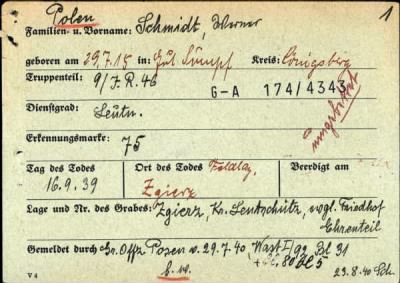 Polen 1
Familien- u. Vorname: Schmidt, Werner
geboren am 29.7.15 in: Gut Sumpf Kreis: Königsberg
Truppenteil: 9/J.R.46 G-A 174/4343
Dienstgrad: Leutn.
Erkennungsmarke: 75
Tag des Todes Ort des Todes Feldlaz. Beerdigt am
16.9.39 Zgierz
Lage und Nr. des Grabes: Zgierz, Kr. Lentschütz, evgl. Friedhof
Ehrenteil
Gemeldet durch Gr. Offz Posen v. 29.7.40 Wast I/99 Bl 31
80 Bl 5
V 4 23.8.40 Sch.